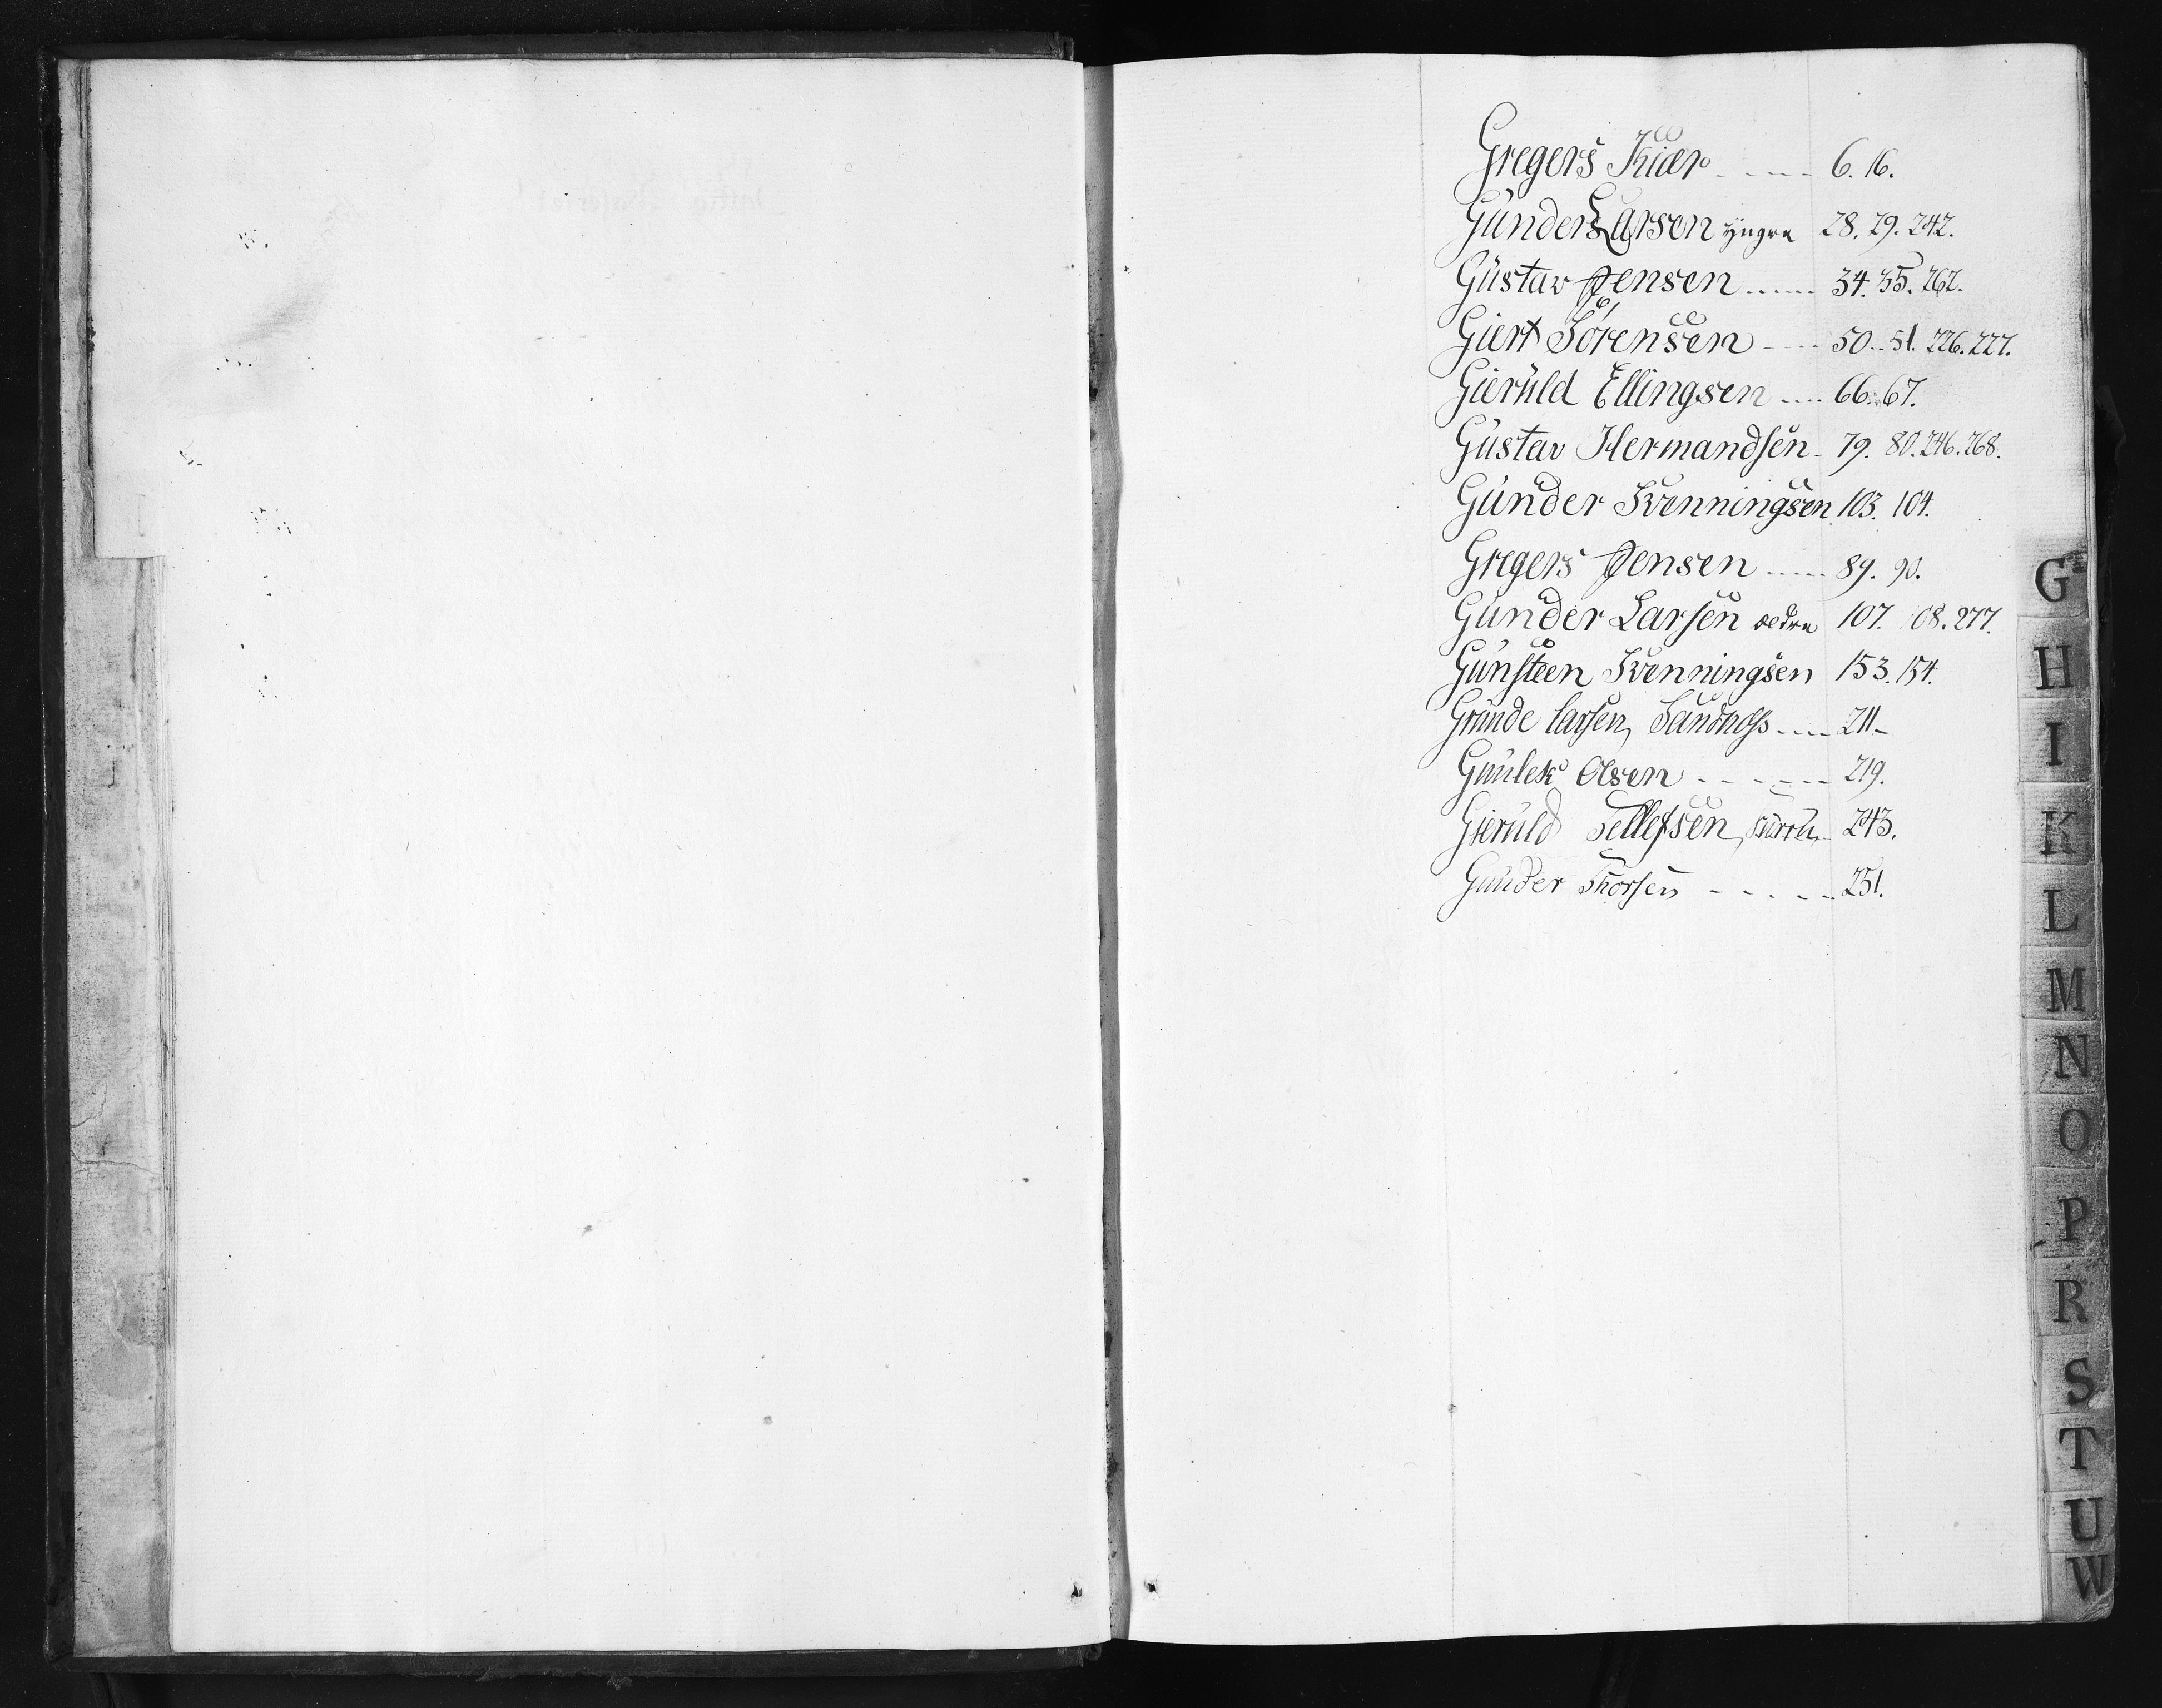 Gregers Kiær ---- 6. 16.
Gunder Larsen yngre 28. 29. 242.
Gustav Jensen ---- 34. 35. 262.
Giert Sörensen ---- 50. 51. 226. 227.
Gieruld Ellingsen ---- 66. 67.
Gustav Hermandsen - 79. 80. 246. 268.
Gunder Svenningsen 103. 104.
Gregers Jensen ---- 89. 90.
Gunder Larsen ældre 107. 108. 277.
Gunsteen Svenningsen 153. 154.
Grunde Larsen, ---- 211-
Gunlek Olsen ---- 219.
Gieruld Tellefsen, 243.
Gunder Thorsen ---- 251.
G
H
I
K
L
M
N
O
P
R
S
T
U
W